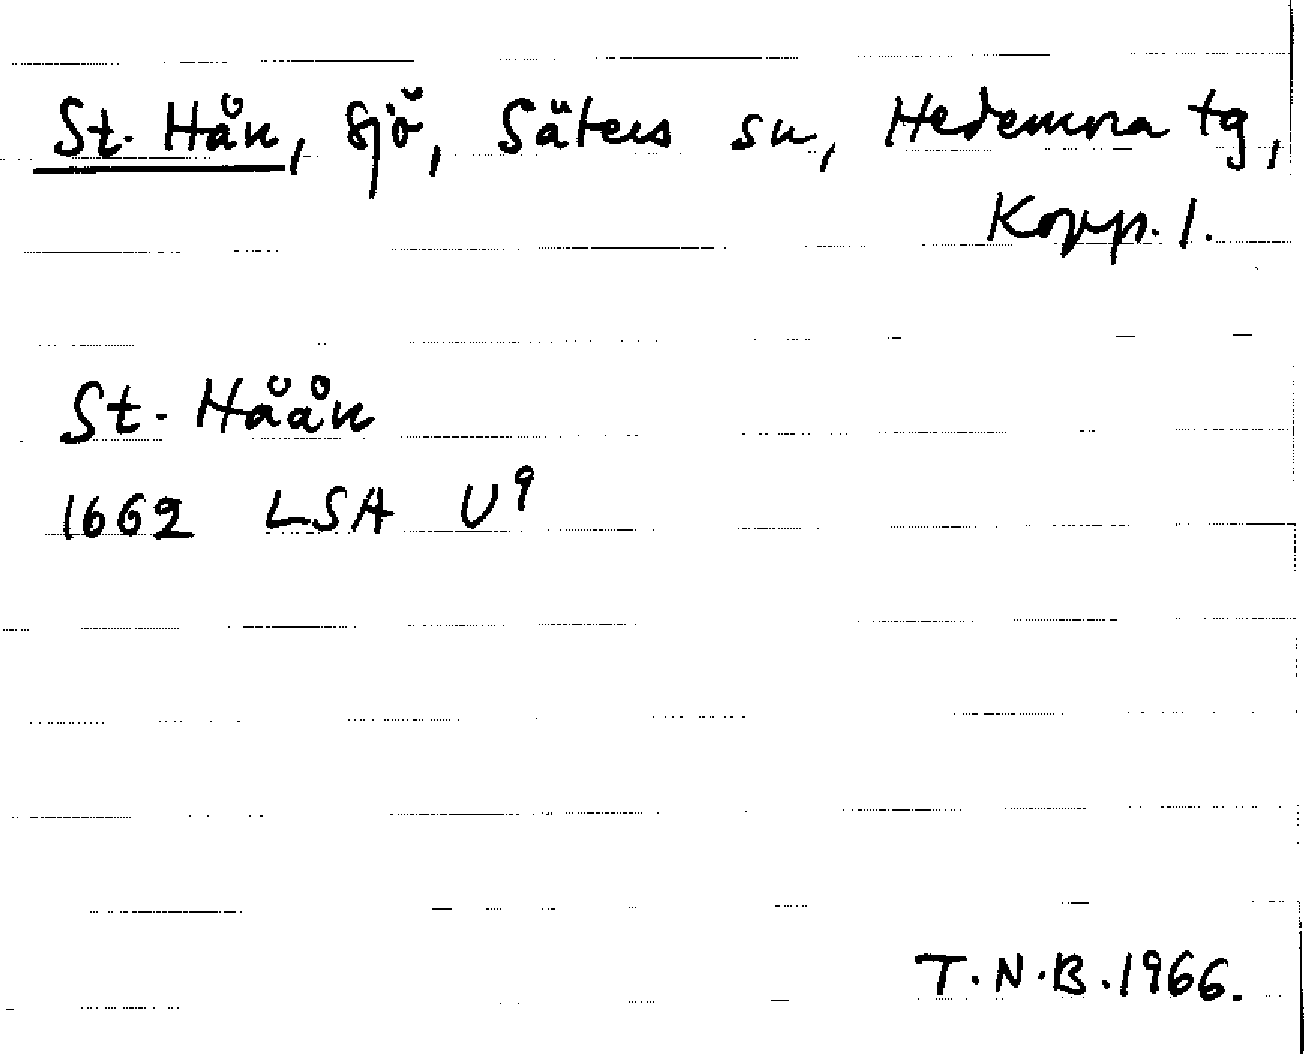 St. Hån, sjö, Säters sn, Hedemora tg,
Kopp. l.
St. Håån
1662 LSA U⁹
T.N.B. 1966.